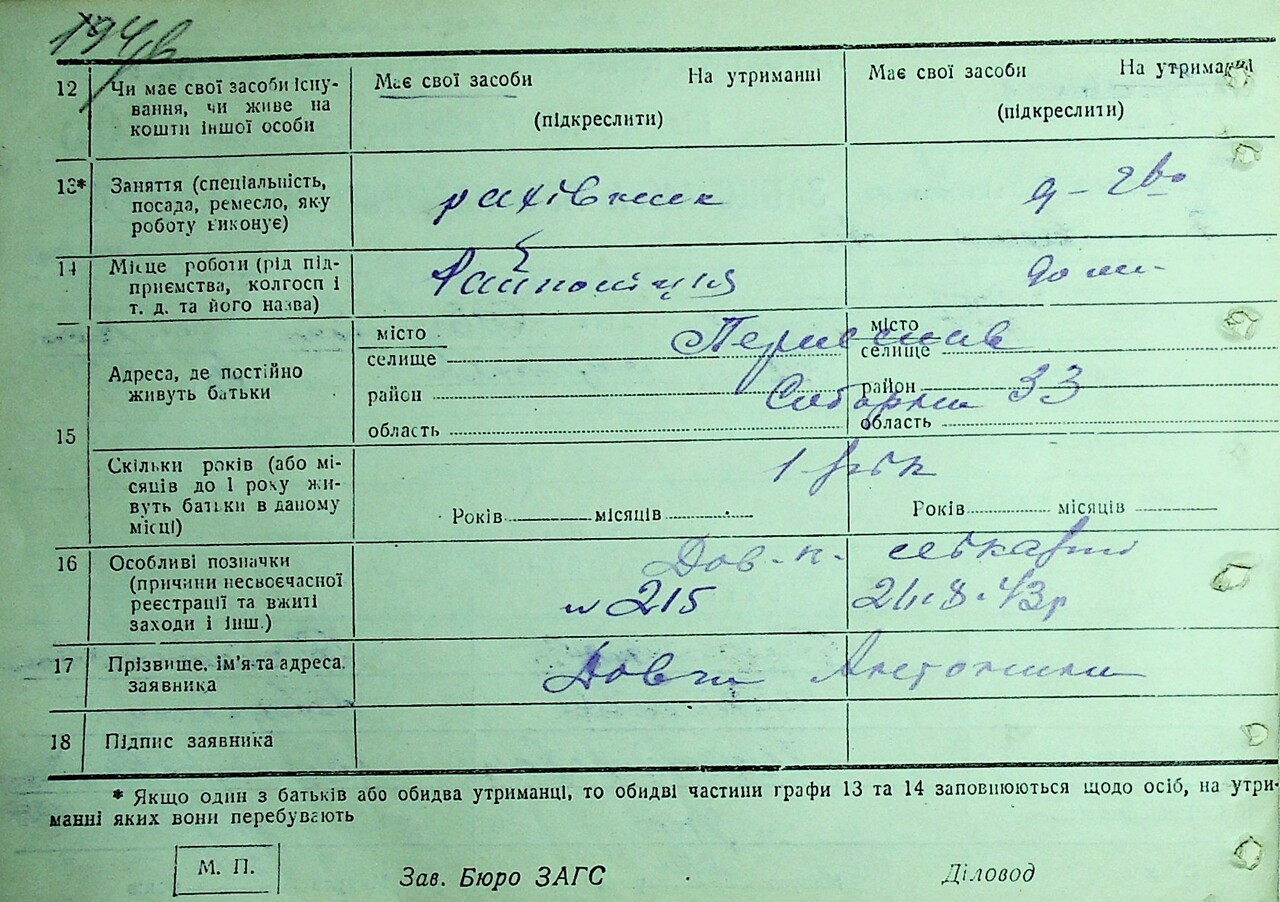 194
12 Чи має свої засоби існу- Має свої засоби На утриманні Має свої засоби На утриманні
вання, чи живе на (підкреслити) (підкреслити)
кошти іншої особи
13* Заняття (спеціальність, рахівник д-гво
посада, ремесло, яку
роботу виконує)
14 Місце роботи (рід під- Райполіція дом-
приємства, колгосп і
т. д. та його назва)
15 Адреса, де постійно живуть батьки місто місто
селище селище
район район 33
область область
Скільки років (або мі- 1 рік
сяців до 1 року жи-
вуть батьки в даному Років місяців Років місяців
місці)
16 Особливі позначки Дов-к-
(причини несвоєчасної № 215 21.8.43р
реєстрації та вжиті
заходи і інш.)
17 Прізвище, ім’я та адреса Антонина
заявника
18 Підпис заявника
* Якщо один з батьків або обидва утриманці, то обидві частини графи 13 та 14 заповнюються щодо осіб, на утри-
манні яких вони перебувають
М. П. Зав. Бюро ЗАГС Діловод